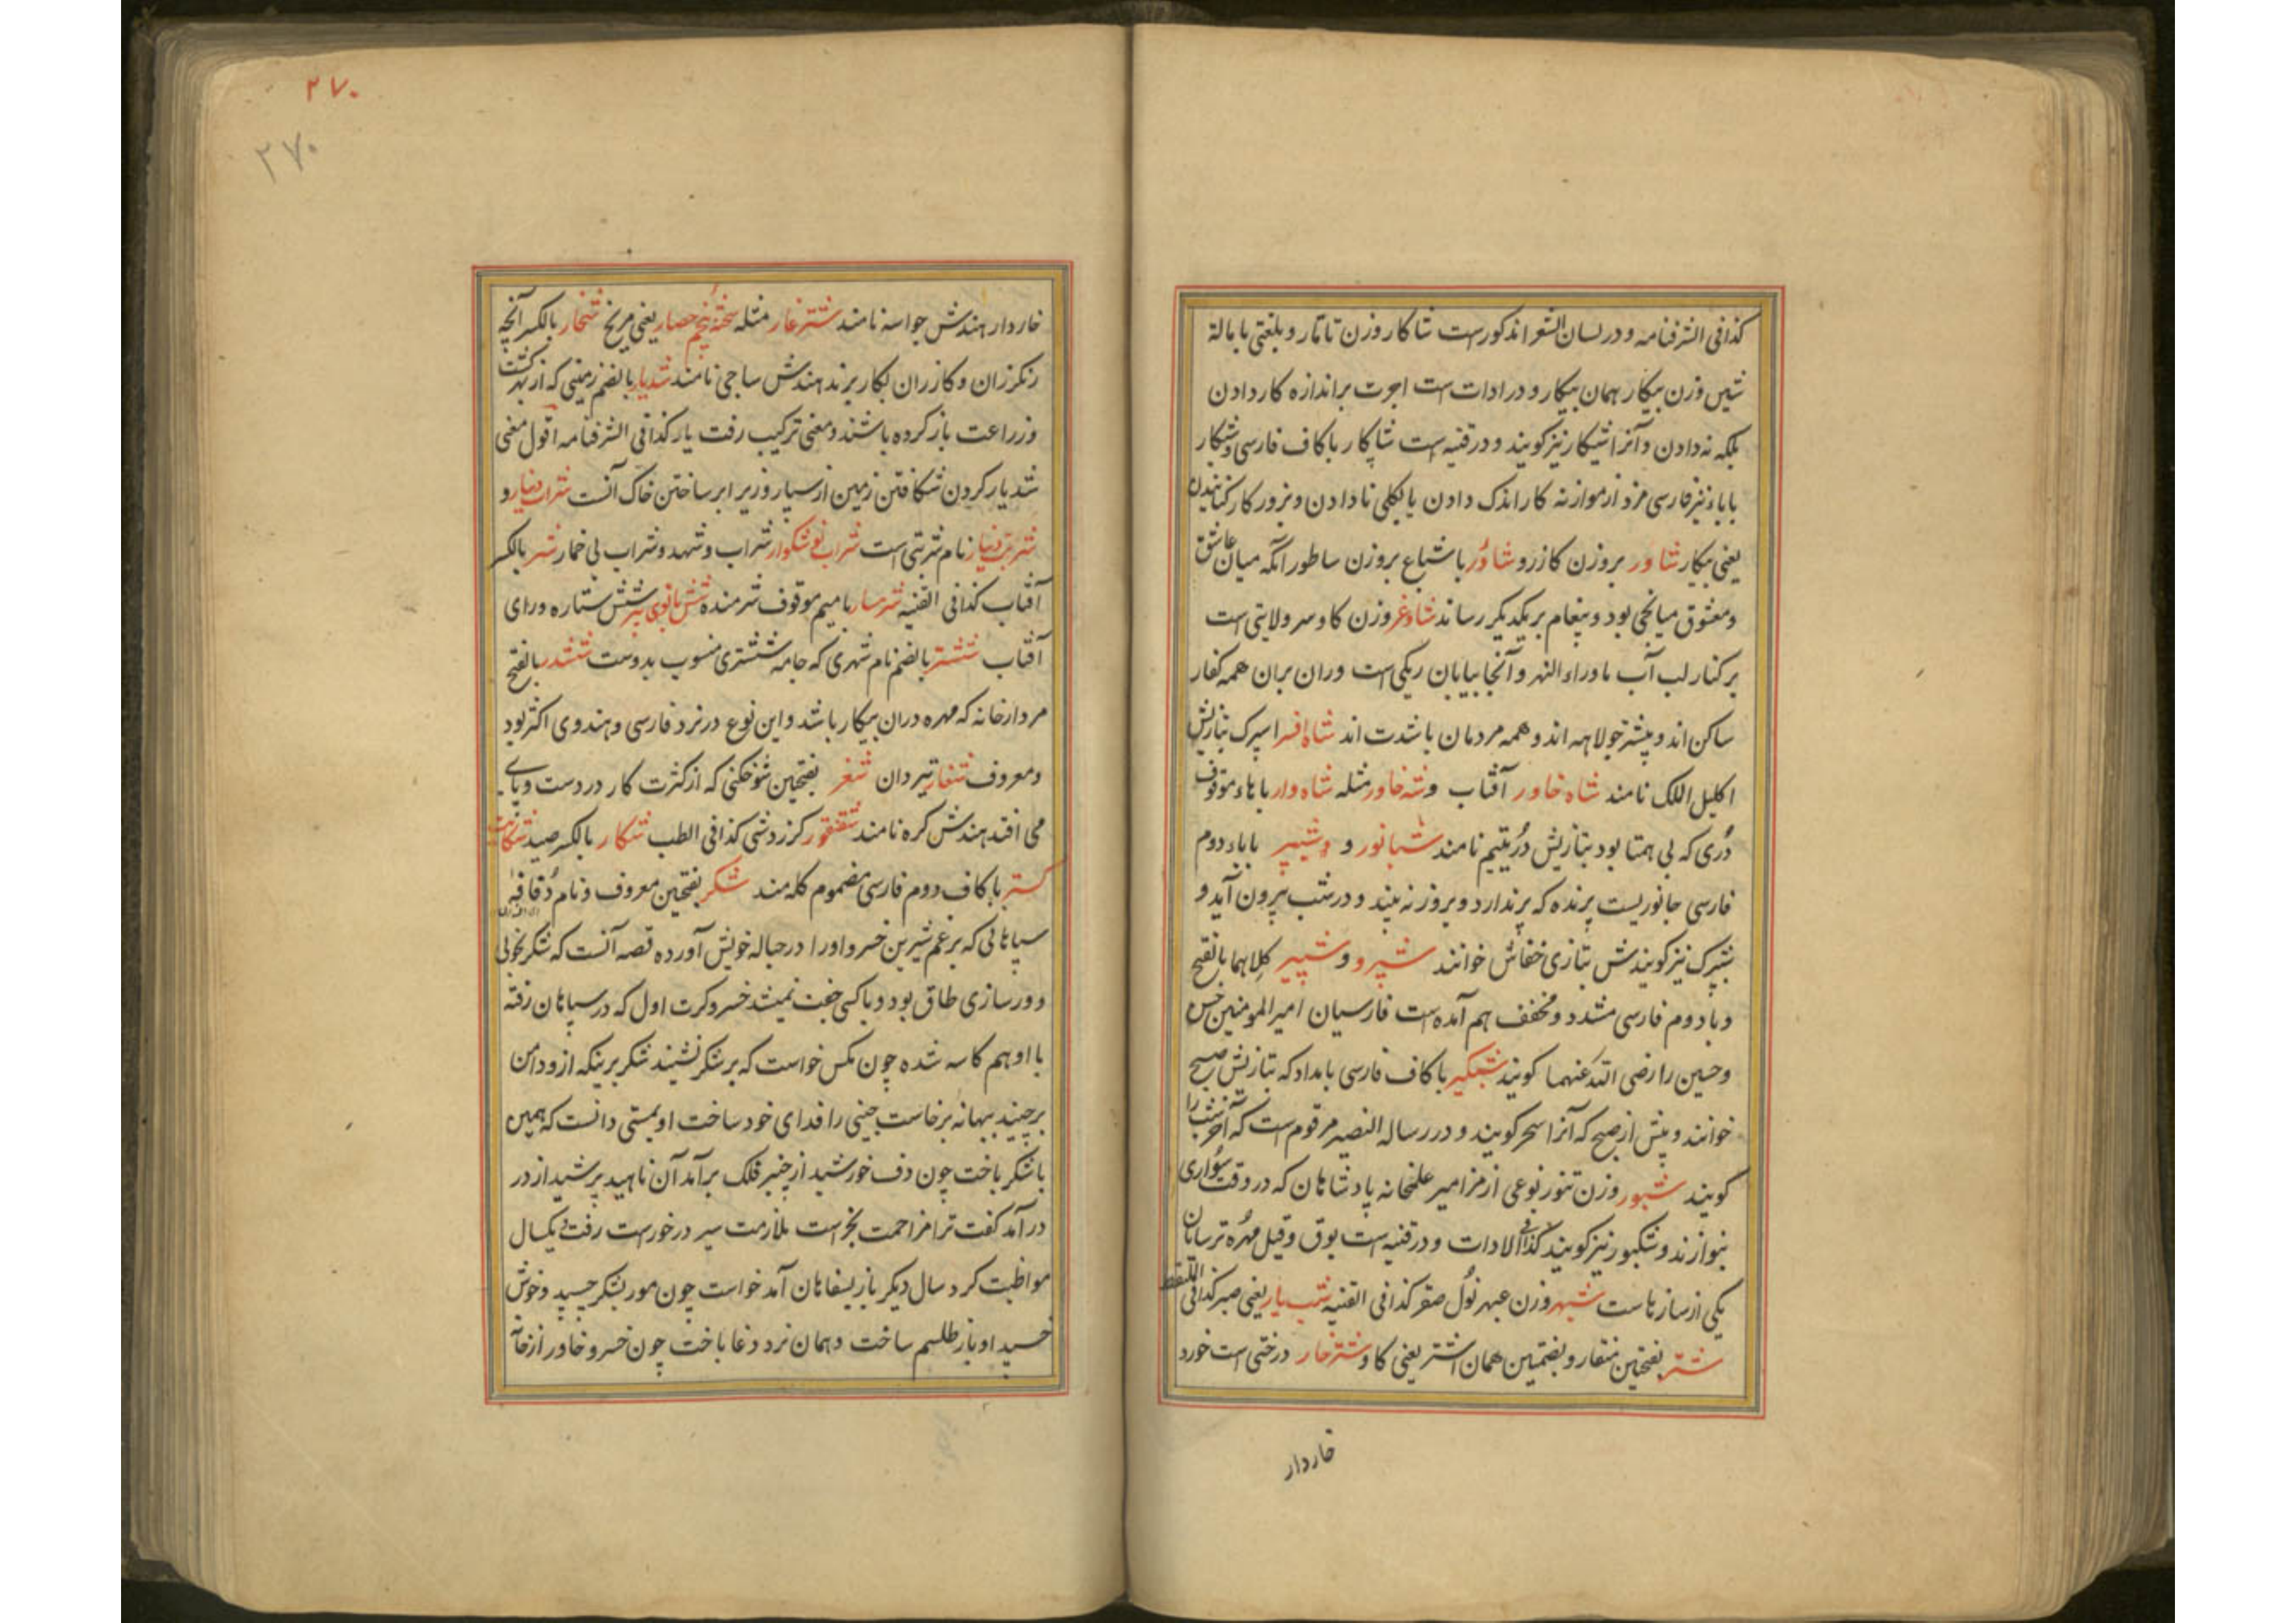 کذافی الشرفنامه و در لسان الشعرا مذکورست شاکار وزن تاتار و بلغتی با مالة
شین وزن بیکار همان بیکار و در ادات ست اجرت بر اندازه کار دادن
بلکه نه دادن و آنرا شیکار نیز کویند و در قنیه است شاپکار با کاف فارسی و شبکار
با باء نیز فارسی مزد از موازنه کار اندک دادن یا بکلی نا دادن و بزور کار کنانیدن
یعنی بیکار شاور بروزن کازر و شاور باشباع بروزن ساطور آنکه میان عاشق
و معشوق میانجی بود و پیغام بر یکدیکر رساند شاوغر وزن کاوسر ولایتی است
بر کنار لب آب ماوراء النهر و آنجا بیابان ریکی است وران بران همه کفار
ساکن اند و بیشتر جولاهه اند و همه مردمان باشدت اند شاه افسر اسپرک بتازیش
اکلیل الملک نامند شاه خاور آفتاب و شه خاور مثله شاه وار با هاء موقوف
دری که بی همتا بود بتازیش در یتیم نامند شبانور و و شبپر با باء دوم
فارسی جانوریست پرنده که پر ندارد و بروز نه بیند و در شب بیرون آید و
شبپرک نیز کویندش بتازی خفاش خوانند شپرو و شپیر کلاهما بالفتح
و با دوم فارسی مشدد و مخفف هم آمده است فارسیان امیر المومنین حسن
و حسین را رضی الله عنهما کویند شبکیر با کاف فارسی بامداد که بتازیش صبح
خوانند و پیش از صبح که آنرا سحر کویند و در رساله النصیر مرقوم است که آخر شب را
کویند شبپور وزن تنور نوعی از مزامیر علمخانه پادشاهان که در وقت سواری
بنوازند و شنکپور نیز کویند کذافی الادات و در قنیه است بوق و قیل مهره ترسایان
یکی از سازهاست شبهر وزن عبهر نول صقر کذافی القنیه شب یار یعنی صبر کذافی الملتقط
شتر بفتحین منقار و بضمتین همان اشتر یعنی کاو شترخار درختی است خورد
خاردار
۲۷۰
۲۷۰
خاردار هندش جواسه نامند شترغار مثله شحنه پنجم حصار یعنی مریخ شخار بالکسر آنچه
رنکرزان و کازران بکار برند هندش ساجی نامند شدیار بالضم زمینی که از بهر کشت
و زراعت باز کرده باشند و معنی ترکیب رفت یار کذافی الشرفنامه اقول معنی
شدیار کردن شکافتن زمین از سپار و زیر ابر ساختن خاک آنست شراب دینار و
شربت دینار نام شربتی است شراب نوشکوار شراب و شهد و شراب بی خمار شر بالکسر
آفتاب کذافی القنیه شرمسار با میم موقوف شرمنده شش بانوی پیر شش ستاره ورای
آفتاب ششتر بالضم نام شهری که جامه ششتری منسوب بدوست ششدر بالفتح
مردارخانه که مهره دران بیکار باشد و این نوع در نرد فارسی و هندوی اکثر بود
و معروف شغار تیردان شغر بفتحین شوخکنی که از کثرت کار در دست و پای
می افتد هندش کره نامند شقنقور کرزدشی کذافی الطب شکار بالکسر صید شکایت
کستر با کاف دوم فارسی مضموم کله مند شکر بفتحین معروف و نام
سپاهانی که برغم شیرین خسرو اورا در حباله خویش آورده قصه آنست که شکر بخوبی
و ورسازی طاق بود و با کسی جفت نمیشد خسرو کرت اول که در سپاهان رفته
با او هم کاسه شده چون مکس خواست که بر شکر نشیند شکر بر نیکه ازو دامن
برچیند ببهانه برخاست جینی را فدای خود ساخت او بمستی دانست که همین
با شکر باخت چون دف خورشید از چنبر فلک برآمد آن ناهید پر شید از در
درآمد کفت ترا مزاحمت بخرست ملازمت سیر درخورست رفت یکسال
مواظبت کرد سال دیکر باز بسفاهان آمد خواست چون مور بشکر چسپد و خوش
خسپد او باز طلسم ساخت و همان نرد دغا باخت چون خسرو خاور از خا